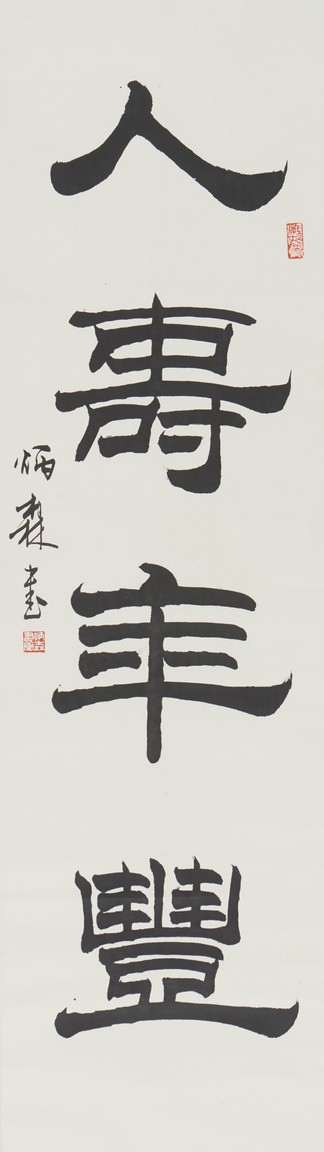 人壽年豐
炳森書